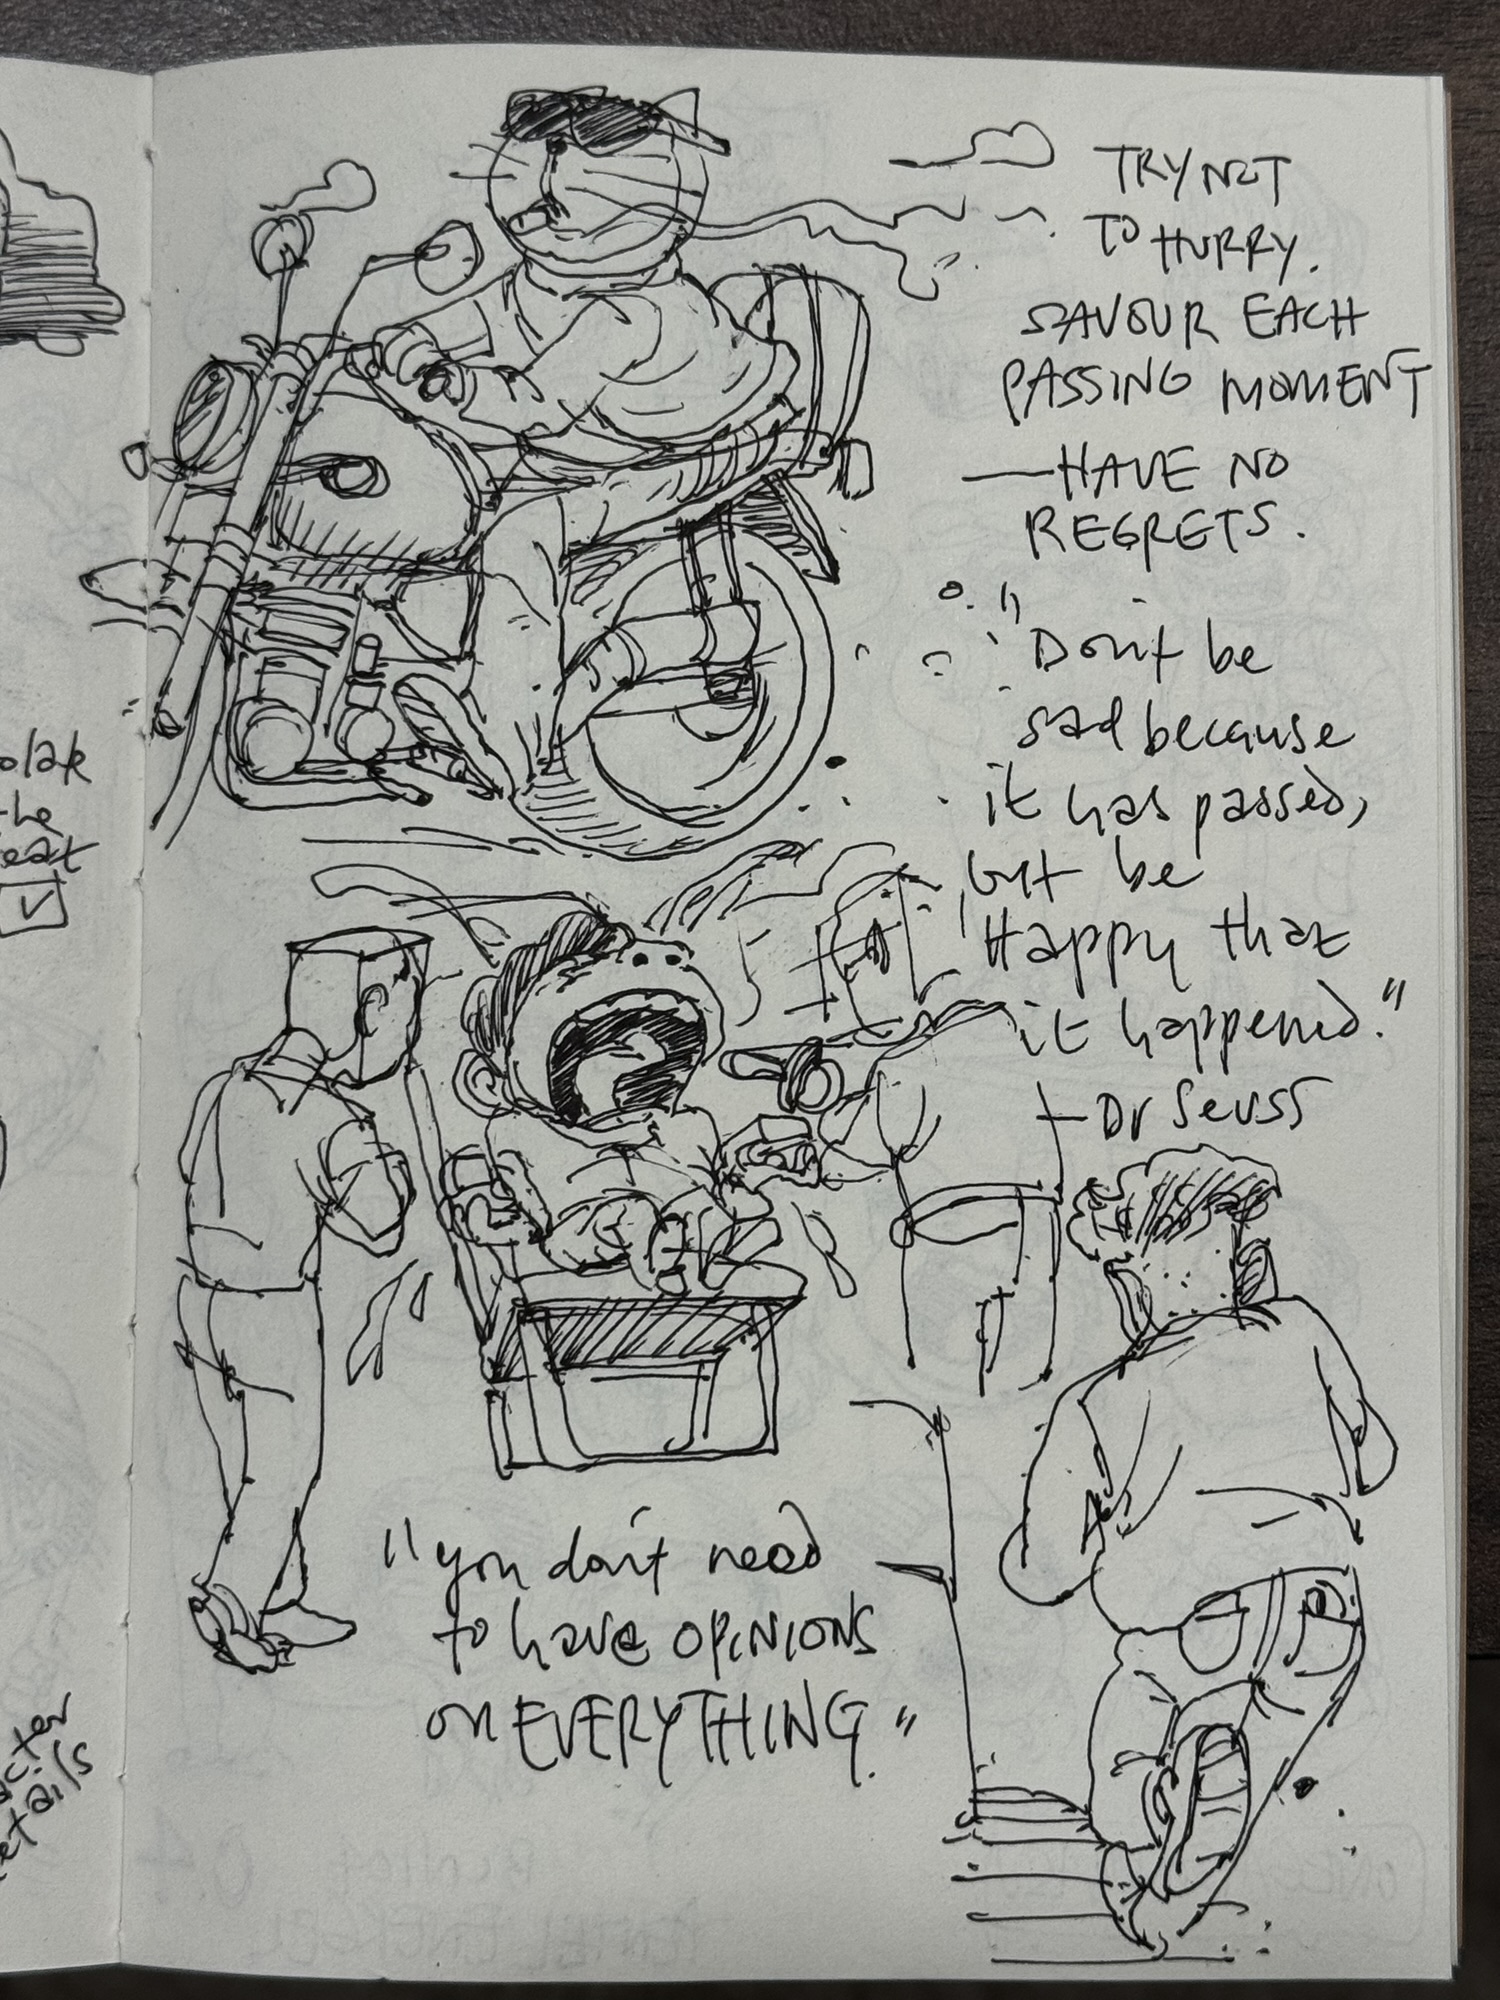 TRY NOT
TO HURRY.
SAVOUR EACH
PASSING MOMENT
—HAVE NO
REGRETS.
"Don't be
sad because
it has passed,
but be
Happy that
it happened."
— Dr Seuss
"you don't need
to have OPINIONS
on EVERYTHING."
olak
the
eat
acter
etails